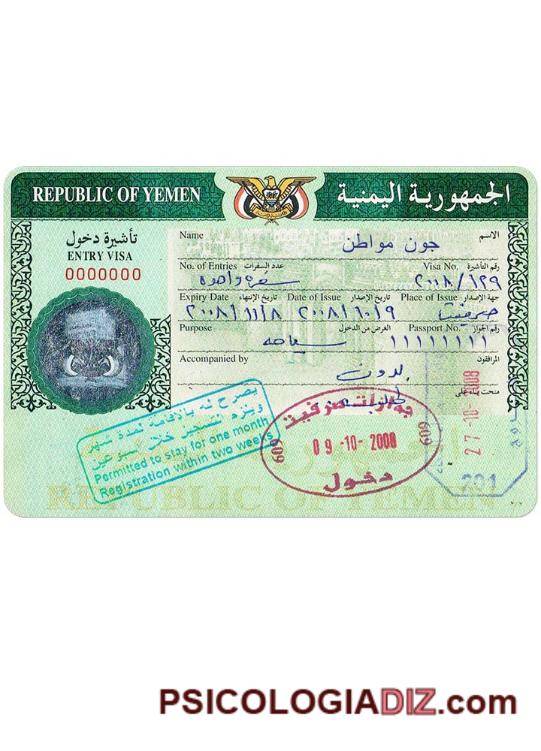 REPUBLIC OF YEMEN
الجمهورية اليمنية
تأشيرة دخول
ENTRY VISA
0000000
Name جون مواطن الاسم
No. of Entries عدد السفرات سفرة واحدة Visa No. رقم التأشيرة ٢٠٠٨/١٢٩
Expiry Date تاريخ الإنتهاء ٢٠٠٨/١١/٨ Date of Issue تاريخ الإصدار ٢٠٠٨/١٠/٩ Place of Issue جهة الإصدار
Purpose الغرض من الدخول سياحه Passport No. رقم الجواز ١١١١١١١١
Accompanied by بدون المرافقون
منحت بناء على
يصرح له بالاقامة لمدة شهر
ويلزم التسجيل خلال اسبوعين
Permitted to stay for one month
Registration within two weeks
609
09-10-2008
609
دخول
27-10-2008
201
REPUBLIC OF YEMEN
PSICOLOGIADIZ.com